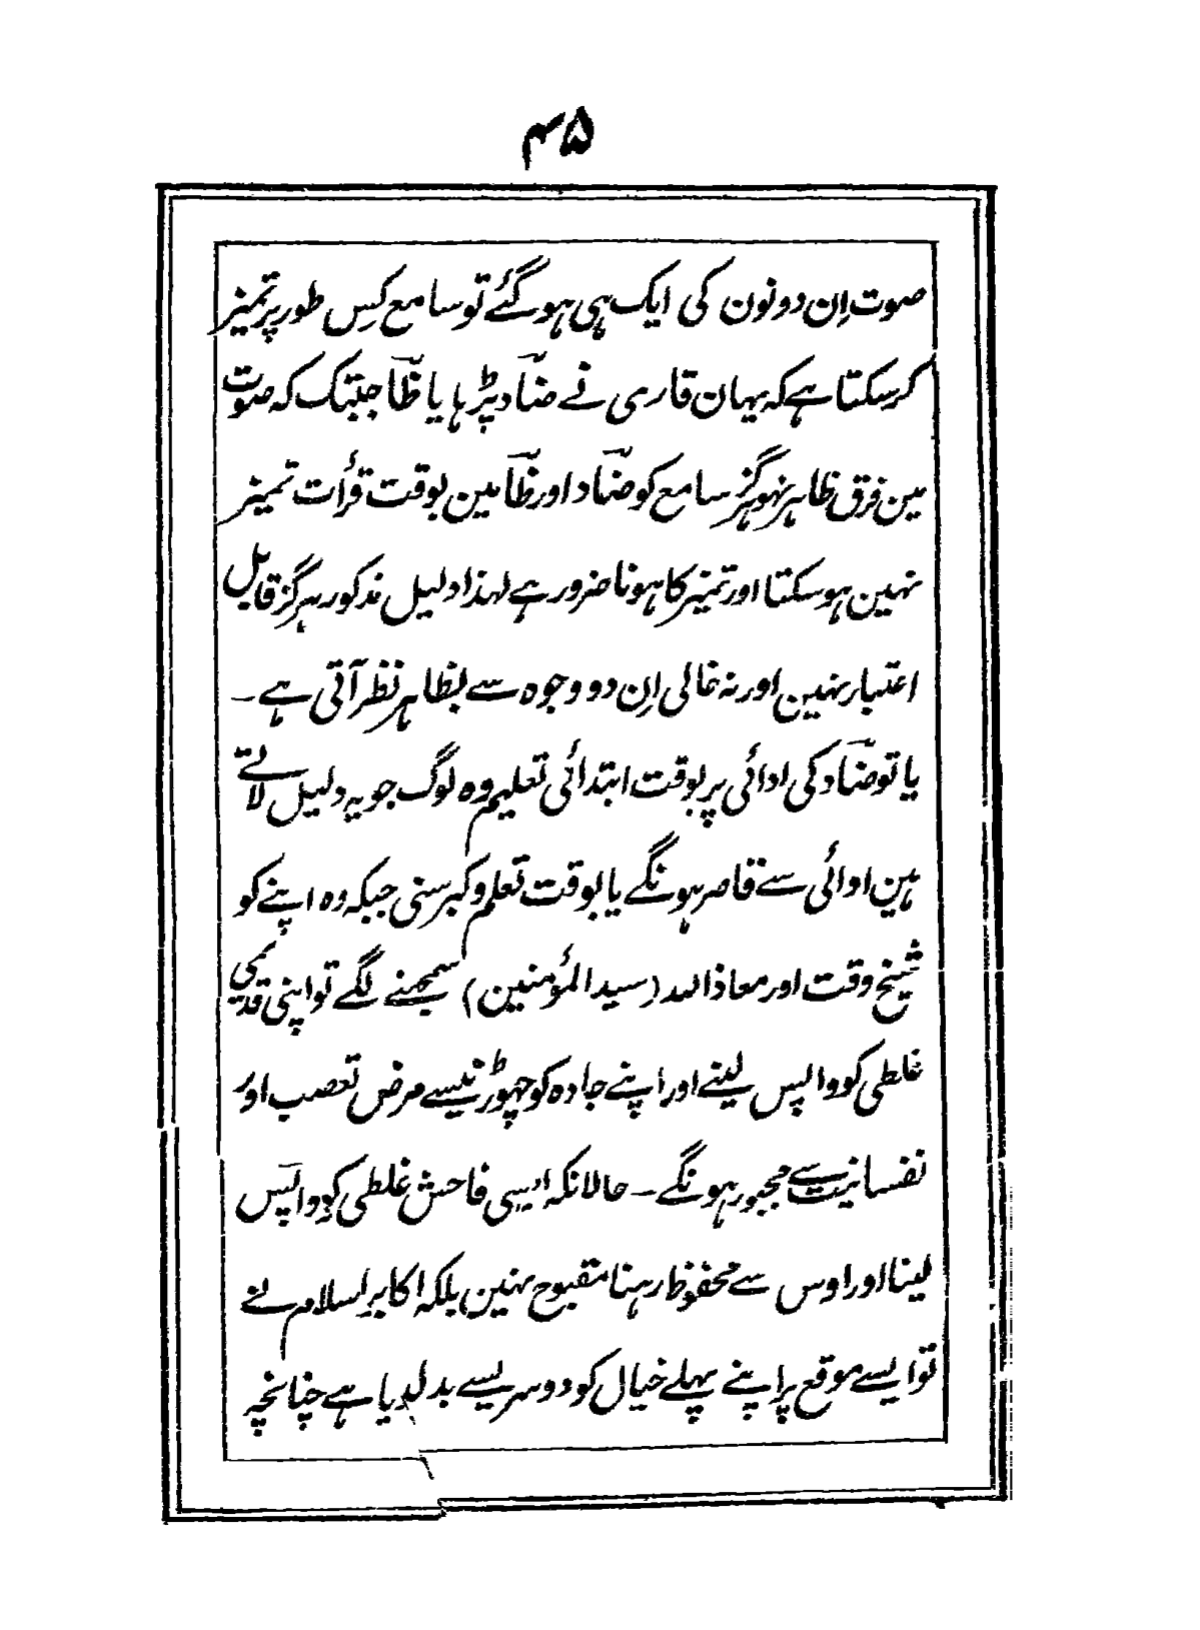 ۴۵
صوت اِن دونون کی ایک ہی ہو گئے تو سامع کِس طور پر تمیز
کر سکتا ہے کہ یہان قاری نے ضآد پڑہا یا ظآ جبتک کہ صوت
مین فرق ظاہر نہو ہرگز سامع کو ضآد اور ظآ مین بوقت قرأت تمیز
نہین ہو سکتا اور تمیز کا ہونا ضرور ہے لہذا دلیل مذکور ہرگز قابل
اعتبار نہین اور نہ غالی اِن دو وجوہ سے بظاہر نظر آتی ہے ۔
یا تو ضآد کی ادائی پر بوقت ابتدائی تعلیم وہ لوگ جو یہ دلیل لاتے
ہین ادائی سے قاصر ہونگے یا بوقت تعلم و کبر سنی جبکہ وہ اپنے کو
شیخ وقت اور معاذ اللہ (سید المؤمنین) سمجہنے لگے تو اپنی قدیمی
غلطی کو واپس لینے اور اپنے جادہ کو چہوڑنیسے مرض تعصب اور
نفسانیت سے مجبور ہونگے ۔ حالانکہ ایسی فاحش غلطی کو واپس
لینا اور اوس سے محفوظ رہنا مقبوح نہین بلکہ اکابر اسلام نے
تو ایسے موقع پر اپنے پہلے خیال کو دوسریسے بدلدیا ہے چنانچہ